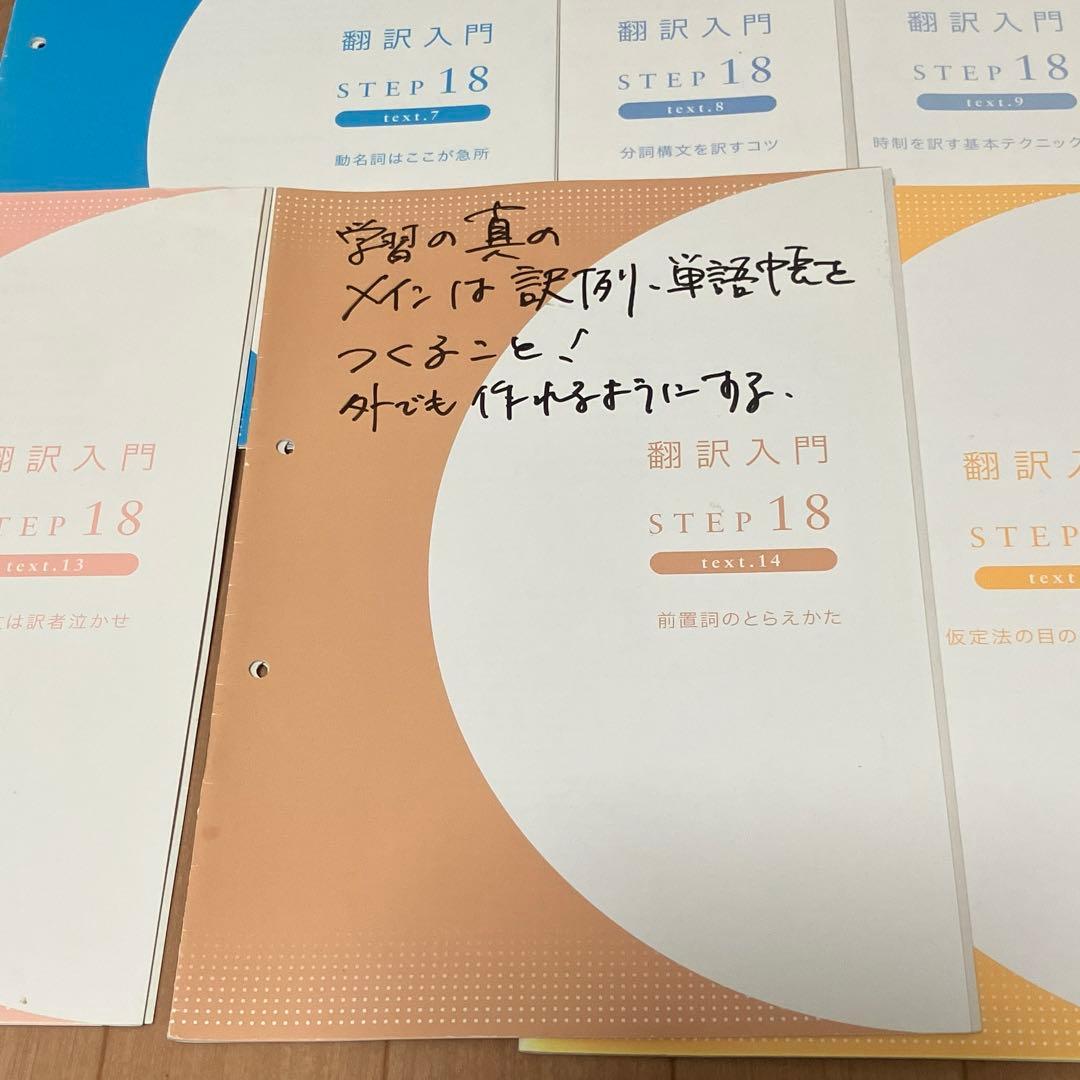 翻訳入門
STEP 18
text.7
動名詞はここが急所
翻訳入門
STEP 18
text.8
分詞構文を訳すコツ
翻訳入門
STEP 18
text.9
時制を訳す基本テクニック
学習の真の
メインは訳例、単語帳を
つくること!
外でも作れるようにする.
翻訳入門
STEP 18
text.14
前置詞のとらえかた
訳入門
STEP 18
text.13
は訳者泣かせ
翻訳
STEP
text
仮定法の目の